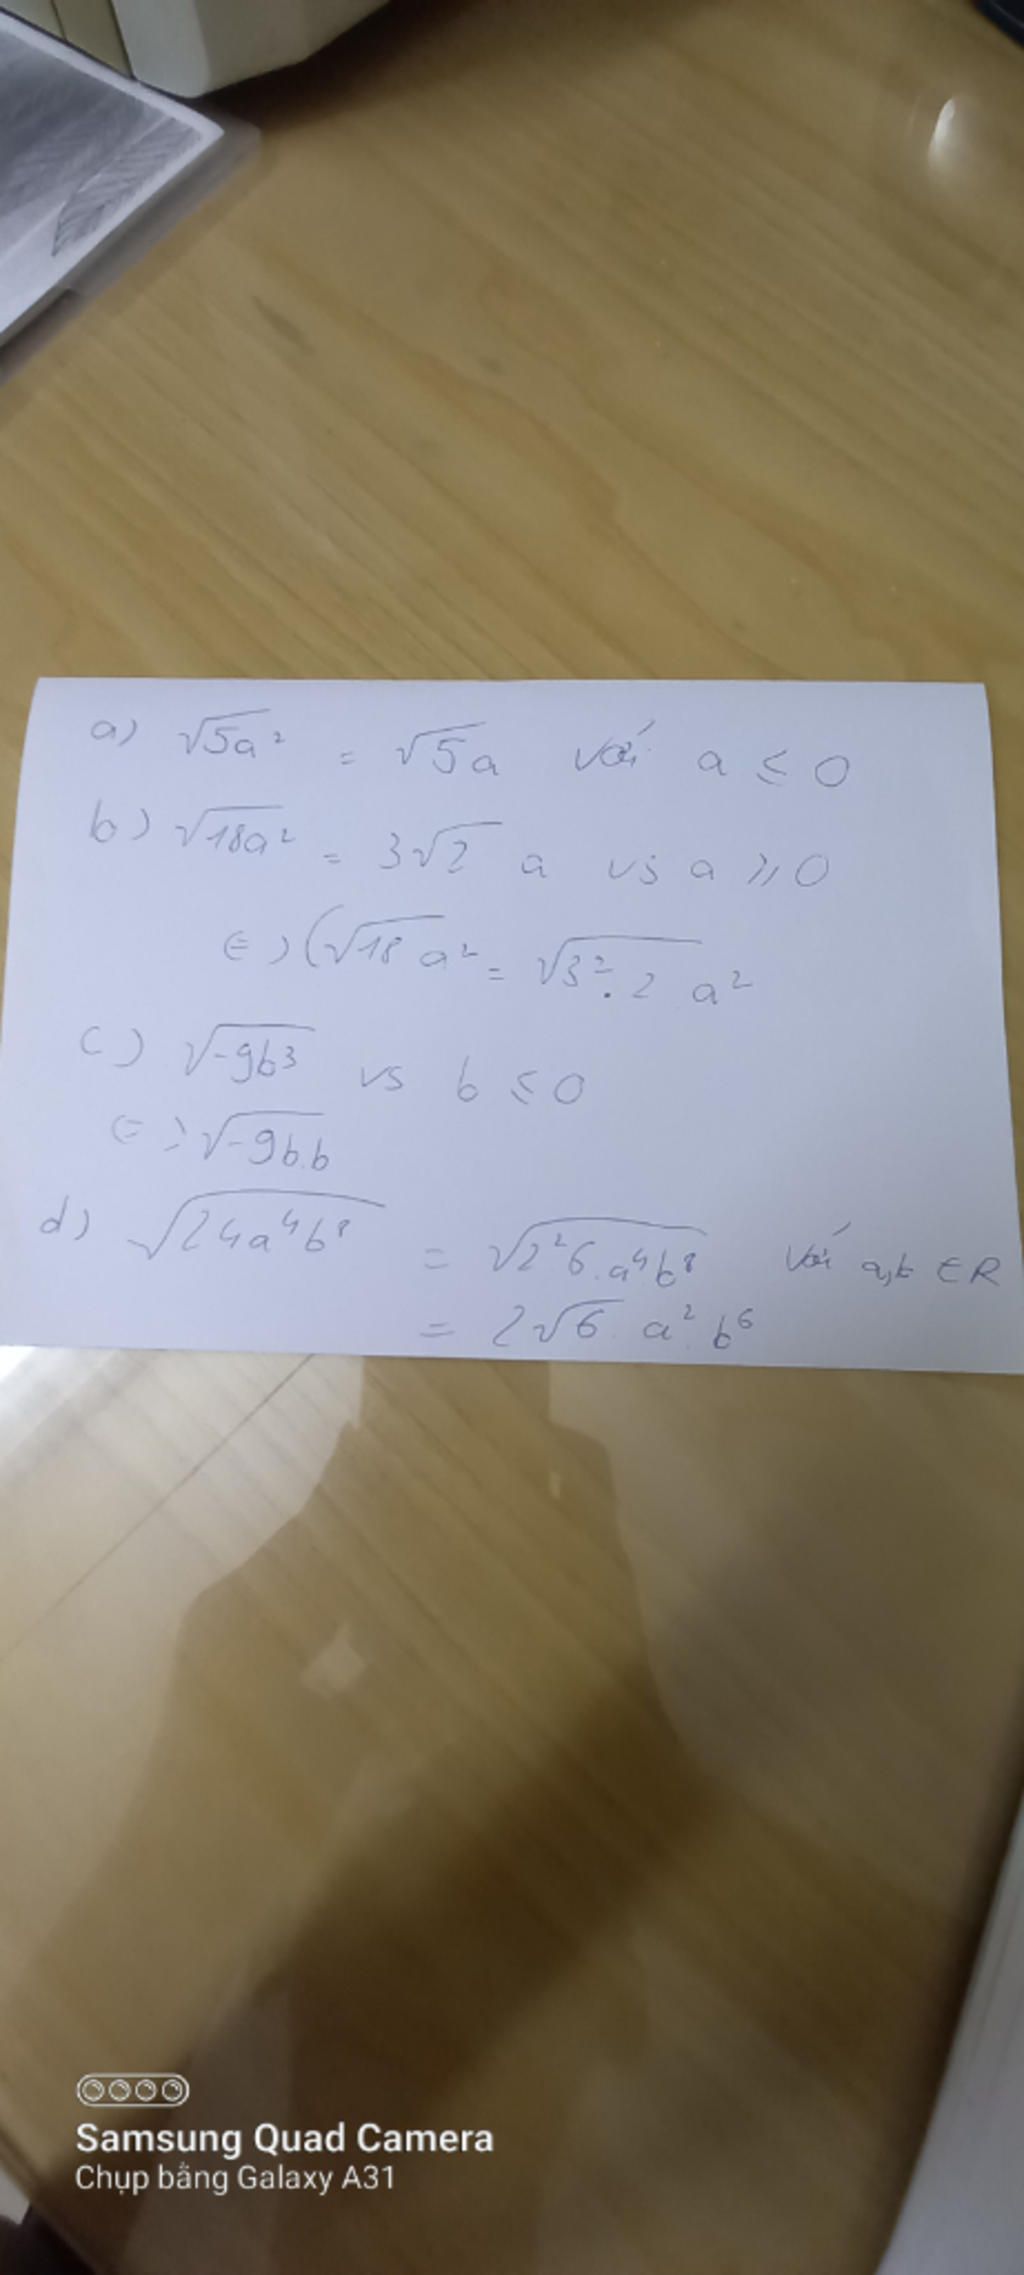 a) √5a² = √5a với a ≤ 0
b) √18a² = 3√2 a vs a ≥ 0
(=) (√18 a² = √3².2 a²
c) √-9b³ vs b ≤ 0
(=) √-9b.b
d) √24a⁴b⁸ = √2²6.a⁴b⁸ với a,b ∈ R
= 2√6. a².b⁶
Samsung Quad Camera
Chụp bằng Galaxy A31